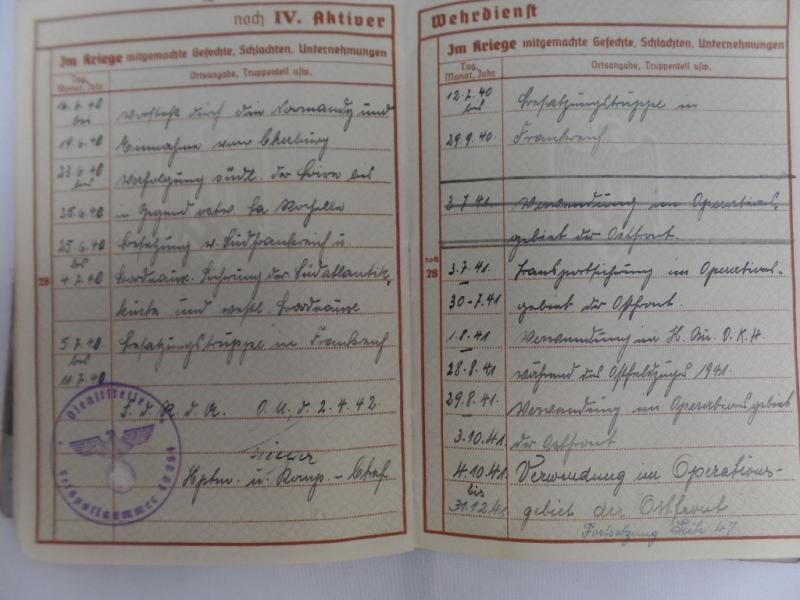 noch IV. Aktiver
Im Kriege mitgemachte Gefechte, Schlachten, Unternehmungen
Tag, Monat, Jahr
Ortsangabe, Truppenteil usw.
16.6.40
bis
19.6.40
Vorstoß durch die Normandy und
Einnahme von
23.6.40
bis
25.6.40
Verfolgung südl. der Loire bis
in Gegend La Rochelle
25.6.40
bis
4.7.40
Besetzung v. Südfrankreich u.
Bordeaux. Sicherung der Südatlantik-
küste und westl. Bordeaux
28
5.7.40
bis
11.7.40
Besatzungstruppe in Frankreich
F. d. R. d. A. O. U. d. 2.4.42.
Hptm. u. Komp. - Chef
Dienststelle
Feldpostnummer
Wehrdienst
Im Kriege mitgemachte Gefechte, Schlachten, Unternehmungen
Tag, Monat, Jahr
Ortsangabe, Truppenteil usw.
12.7.40
bis
29.9.40
Besatzungstruppe in
Frankreich
3.7.41. Verwendung im Operations-
gebiet der Ostfront.
noch
28
3.7.41. Transportsicherung im Operations-
30.7.41 gebiet der Ostfront.
1.8.41 Verwendung im H. Qu. O.K.H.
28.8.41 während des Ostfeldzuges 1941.
29.8.41. Verwendung im Operationsgebiet
3.10.41. der Ostfront
4.10.41. Verwendung im Operations-
bis
31.12.41 gebiet der Ostfront
Fortsetzung Seite 47.